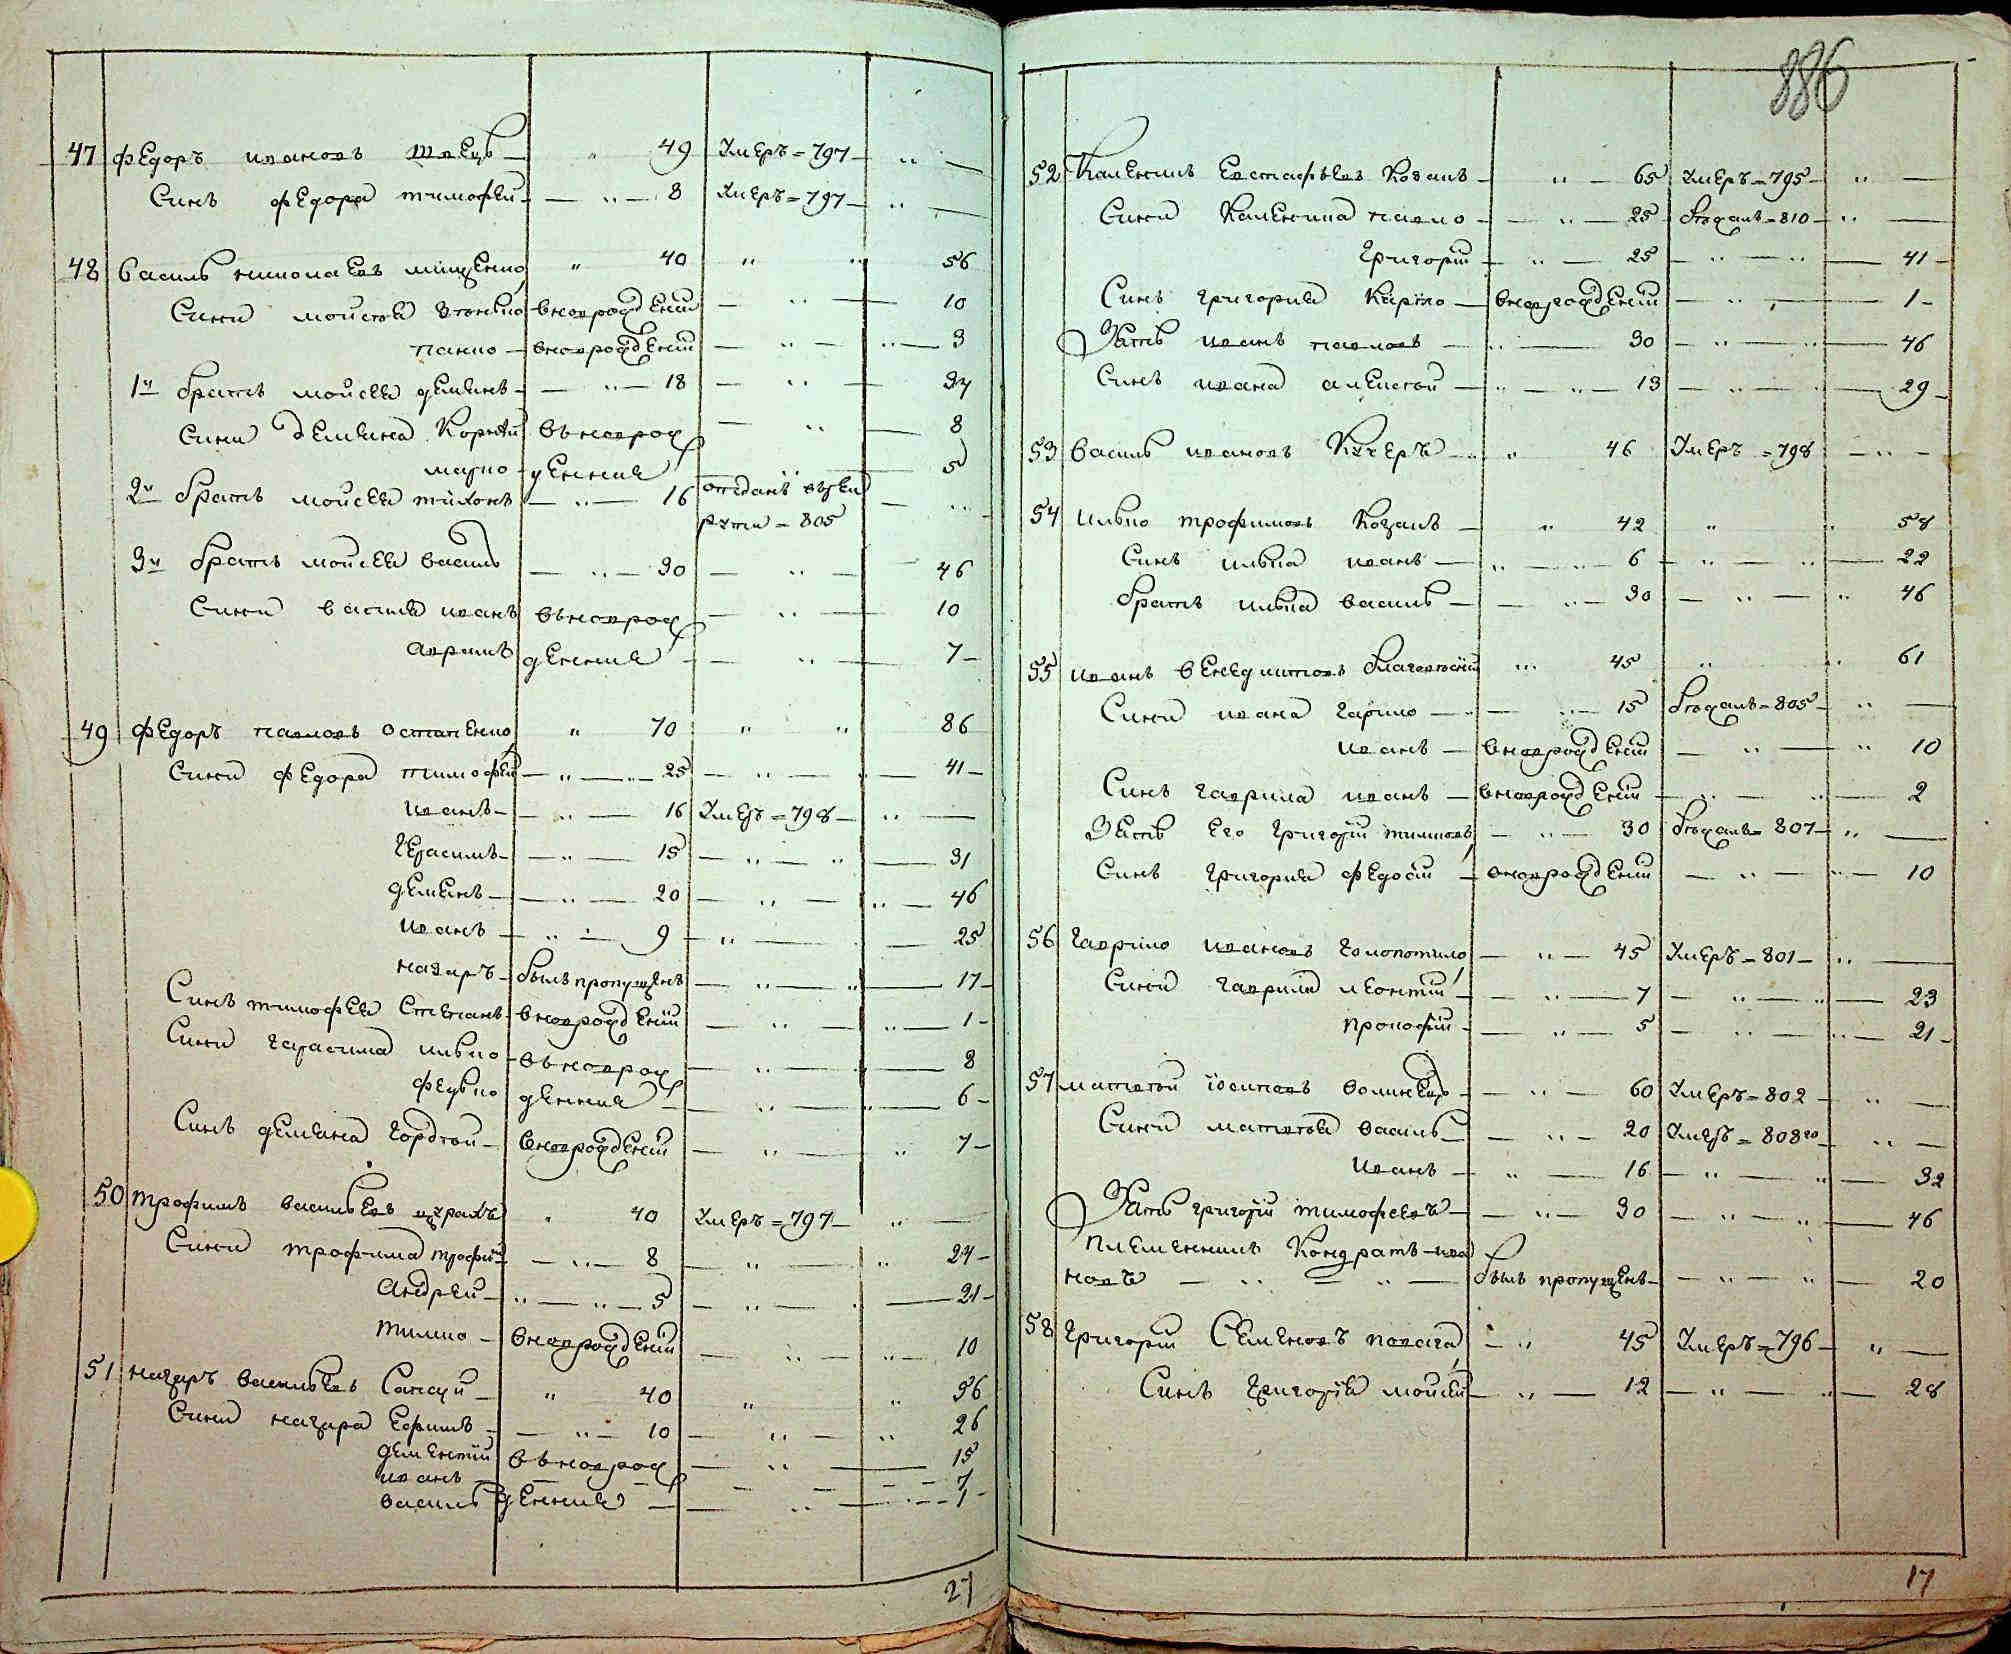 47 Федоръ Ивановъ Швецъ — „ 49 Умеръ = 797 — „ —
Синъ Федора Тимофей — „ — 8 Умеръ = 797 — „ —
48 Василь Николаевъ Мищенко „ 40 „ „ 56
Сини Мойсея вновророжденій — „ — 10
Панко — вноврождений — „ — „ — 3
1й братъ Мойсея Демянъ — „ — 18 — „ — 34
Сини Демяна Корней въноврож — „ — 8
Марко — денние 5
2й братъ Мойсея Тихонъ — „ — 16 отданъ врек — „
рути = 805
3й братъ Мойсея Василь — „ — 30 — „ — 46
Сини Василя Иванъ въноврож — „ — 10
Аврамъ денние — „ — 7 —
49 Федоръ Павловъ Остапенко „ 70 „ „ 86
Сини Федора Тимофей — „ — „ — 25 — „ — „ — 41 —
Иванъ — „ — 16 Умеръ = 798 — „ —
Герасимъ — „ — 15 — „ — „ — 31
Демянъ — „ — 20 — „ — „ — 46
Иванъ — „ — 9 — „ — 25
Назаръ — билъ пропущенъ — „ — „ — 17 —
Синъ Тимофея Степанъ — вноврожденій — „ — „ — 1 —
Сини Гарасима Илько — въноврож — „ — 8
Федько денние — „ — „ — 6 —
Синъ Демяна Гордей — вноврожденій — „ — „ 7 —
50 Трофимъ Васильевъ „ 40 Умеръ = 797 — „ —
Сини Трофима Трофим — „ — 8 — „ — „ — 24 —
Андрей — „ — „ — 5 — „ — 21 —
Тимко — вноврожденій — „ — „ — 10
51 Назаръ Васильевъ „ 40 „ „ 56
Сини Назара Ефимъ — „ — 10 — „ — „ 26
Дементій въноврож — „ — 15
Иванъ — — — — 7
Василь денние — — „ — „ — 1 —
27
886
52 Каленикъ Евстафьевъ Козакъ — „ — 65 Умеръ = 795 — „ —
Сини Каленика Павло — „ — 25 = 810 — „ —
Григорій — „ — 25 — „ — „ — 41 —
Синъ Григория Кирило — вноврожденій — „ — 1 —
Зять Иванъ Павловъ — „ — 30 — „ — „ — 46
Синъ Ивана Алексей — „ — „ — 13 — „ — „ — 29 —
53 Василь Ивановъ Кучеръ — „ 46 Умеръ = 798 — „ —
54 Илько Трофимовъ Козакъ — „ 42 „ „ 58
Синъ Илька Иванъ — „ — „ — 6 — „ — „ — 22
братъ Илька Василь — „ — 30 — „ — „ 46
55 Иванъ Венедиктовъ „ 45 „ „ 61
Сини Ивана Гарило — „ — 15 = 805 — „ —
Иванъ — вноврожденій — „ — „ 10
Синъ Гаврила Иванъ — вноврожденій — „ — „ — 2
Зять Его Григорій — „ — 30 = 807 — „ —
Синъ Григория Федосій — вноврожденій — „ — „ — 10
56 Гаврило Ивановъ — „ — 45 Умеръ = 801 — „ —
Сини Гаврила Леонтій — „ — 7 — „ — „ — 23
Прокофій — „ — 5 — „ — „ — 21 —
57 Матвей Іосиповъ Волинецъ — „ — 60 Умеръ = 802 — „ —
Сини Матвея Василь — „ — 20 Умеръ = 808го — „ —
Иванъ — „ — 16 — „ — „ — 32
Зять Григорій Тимофеевъ — „ — 30 — „ — „ — 46
Племенникъ Кондратъ Ива
новъ — „ — „ — билъ пропущенъ — „ — „ — 20
58 Григорій Семеновъ — „ 45 Умеръ = 796 — „ —
Синъ Григорія Мойсей — „ — 12 — „ — „ — 28
17